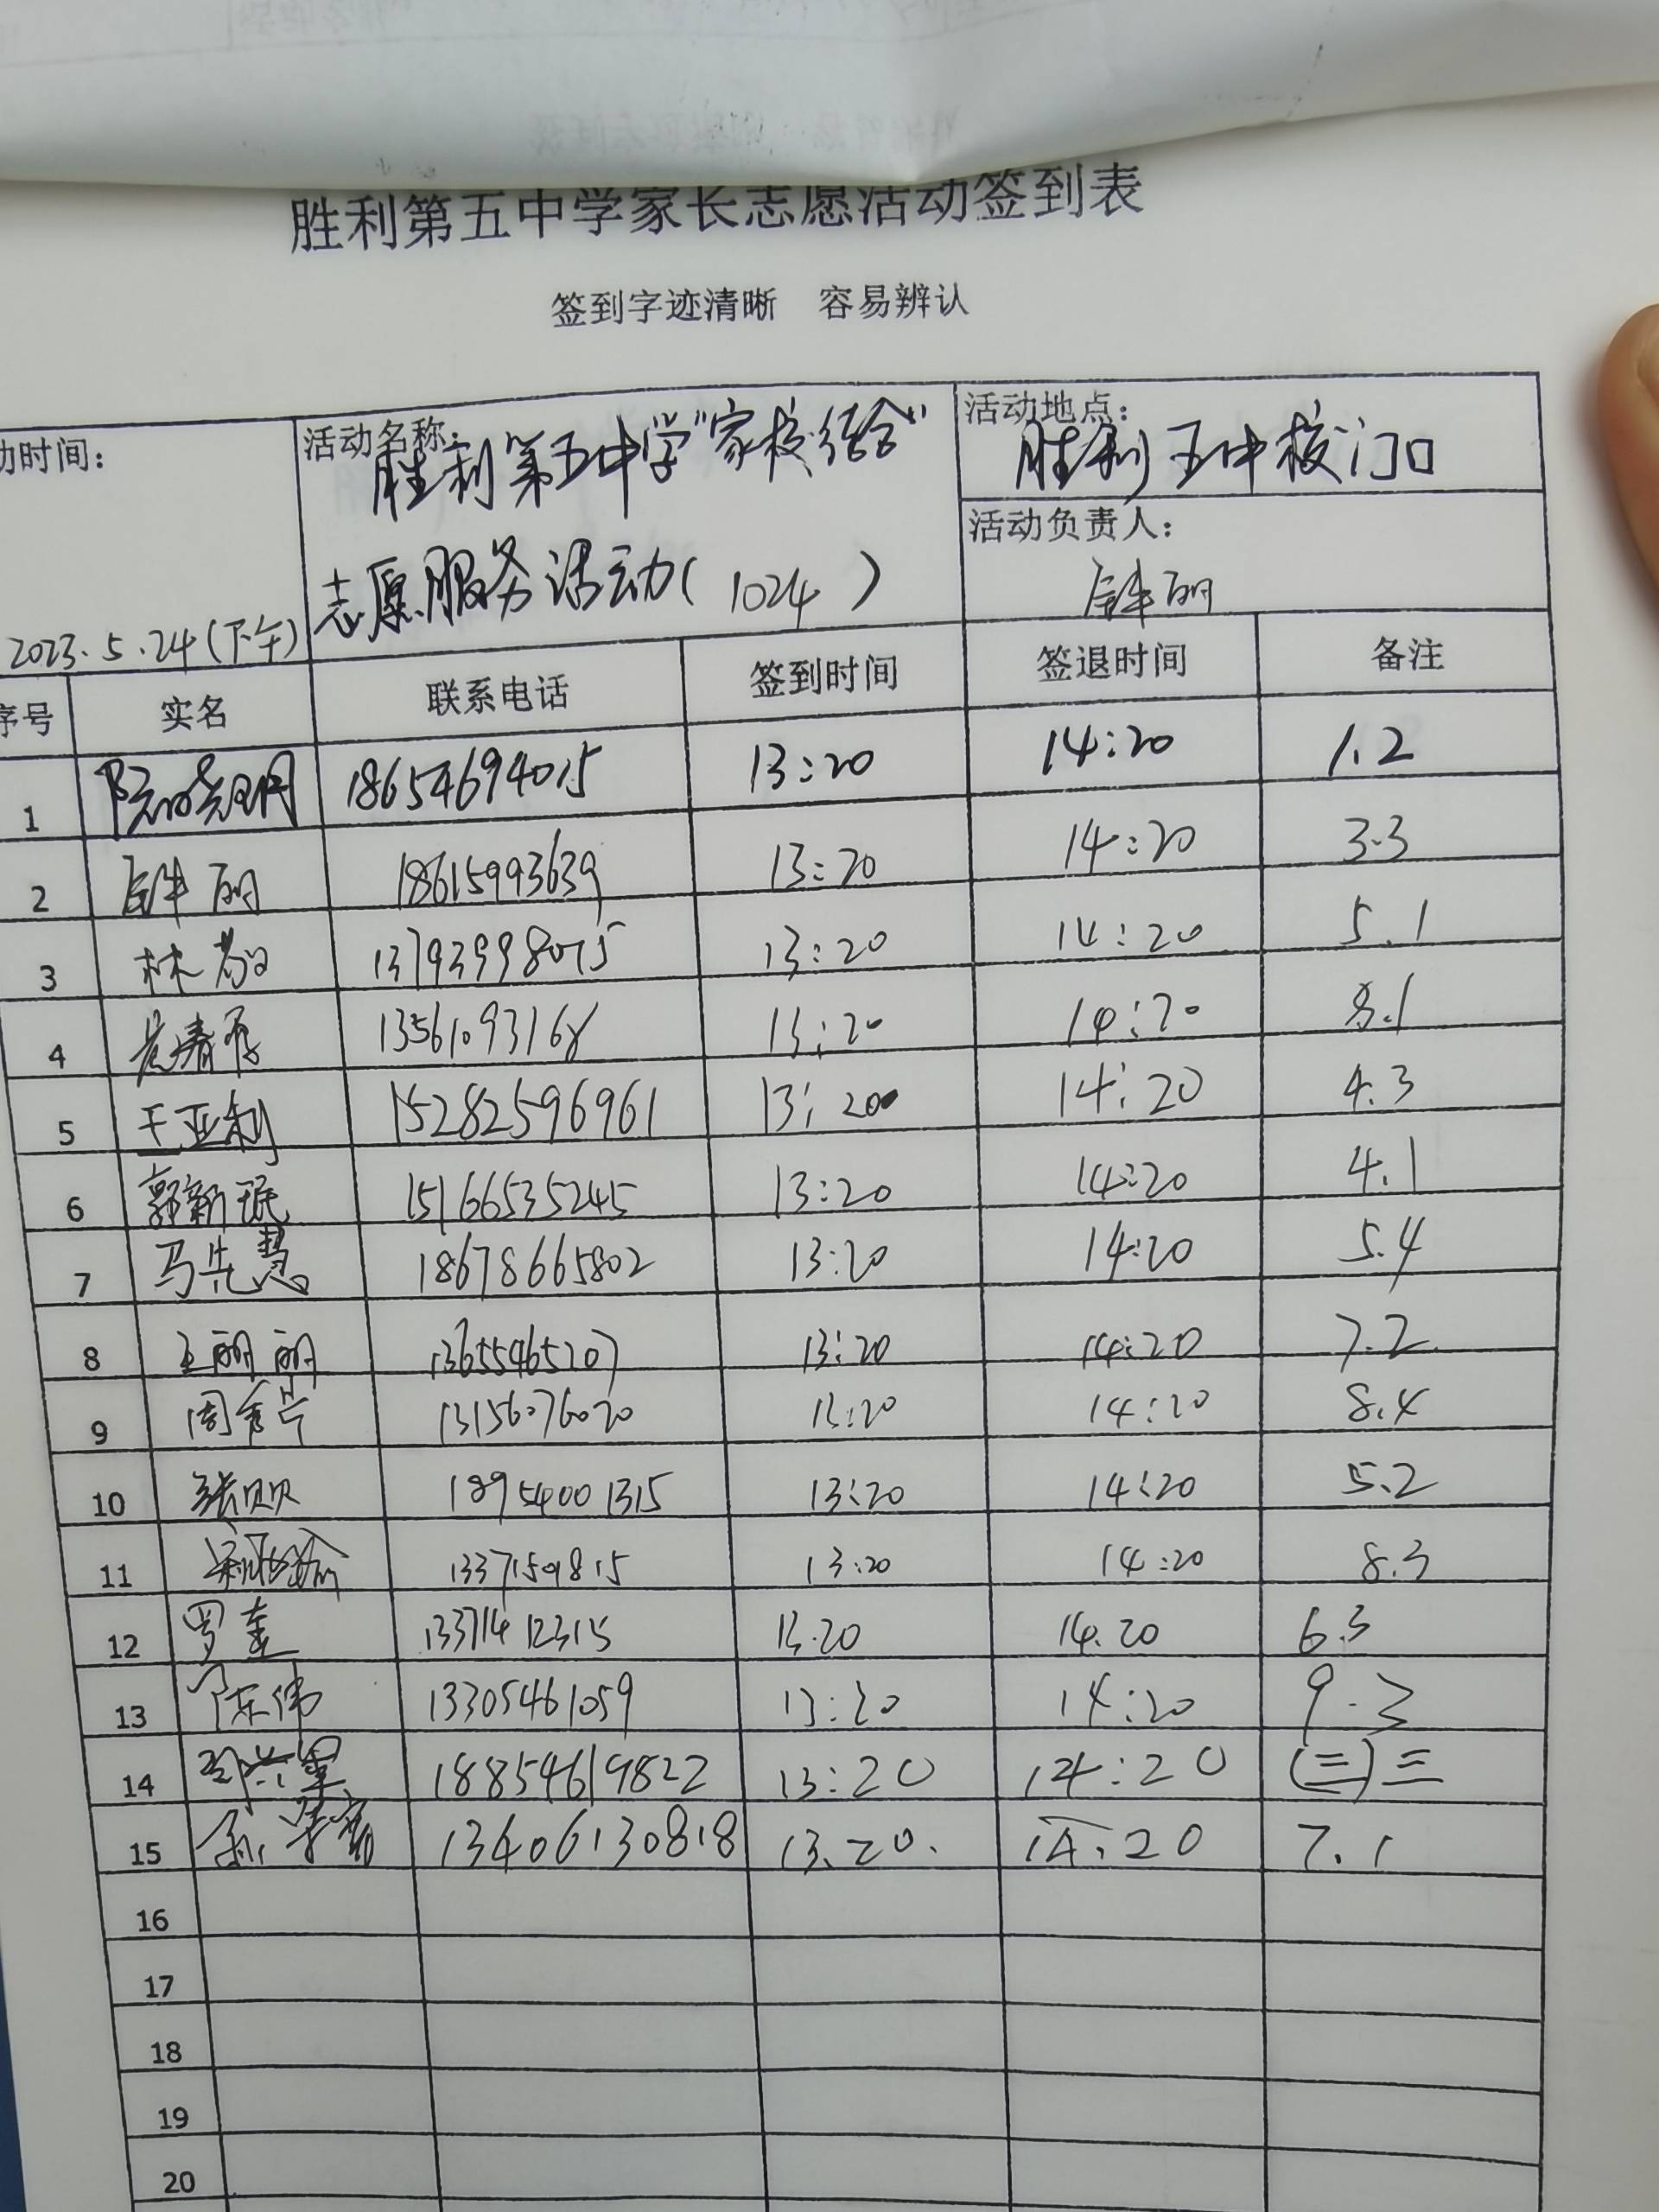 胜利第五中学家长志愿活动签到表
签到字迹清晰 容易辨认
动时间: 2023.5.24(下午)
活动名称: 胜利第五中学"家校结合"
志愿服务活动(1024)
活动地点: 胜利五中校门口
活动负责人: 丽
序号 实名 联系电话 签到时间 签退时间 备注
1 18654694015 13:20 14:20 1.2
2 丽 18615993639 13:20 14:20 3.3
3 林 13793998075 13:20 14:20 5.1
4 13561093168 13:20 14:20 8.1
5 王亚利 15282596961 13:20 14:20 4.3
6 郭新珉 15166535245 13:20 14:20 4.1
7 马先慧 18678665802 13:20 14:20 5.4
8 王丽丽 13655465207 13:20 14:20 7.2
9 周秀芹 13156076020 13:20 14:20 8.4
10 张贝贝 18954001315 13:20 14:20 5.2
11 13371509815 13:20 14:20 8.3
12 罗奎 13371412315 13.20 14.20 6.3
13 陈伟 13305461059 13:20 14:20 9.3
14 18854619822 13:20 14:20 (三)三
15 13406130818 13.20. 14.20 7.1
16
17
18
19
20